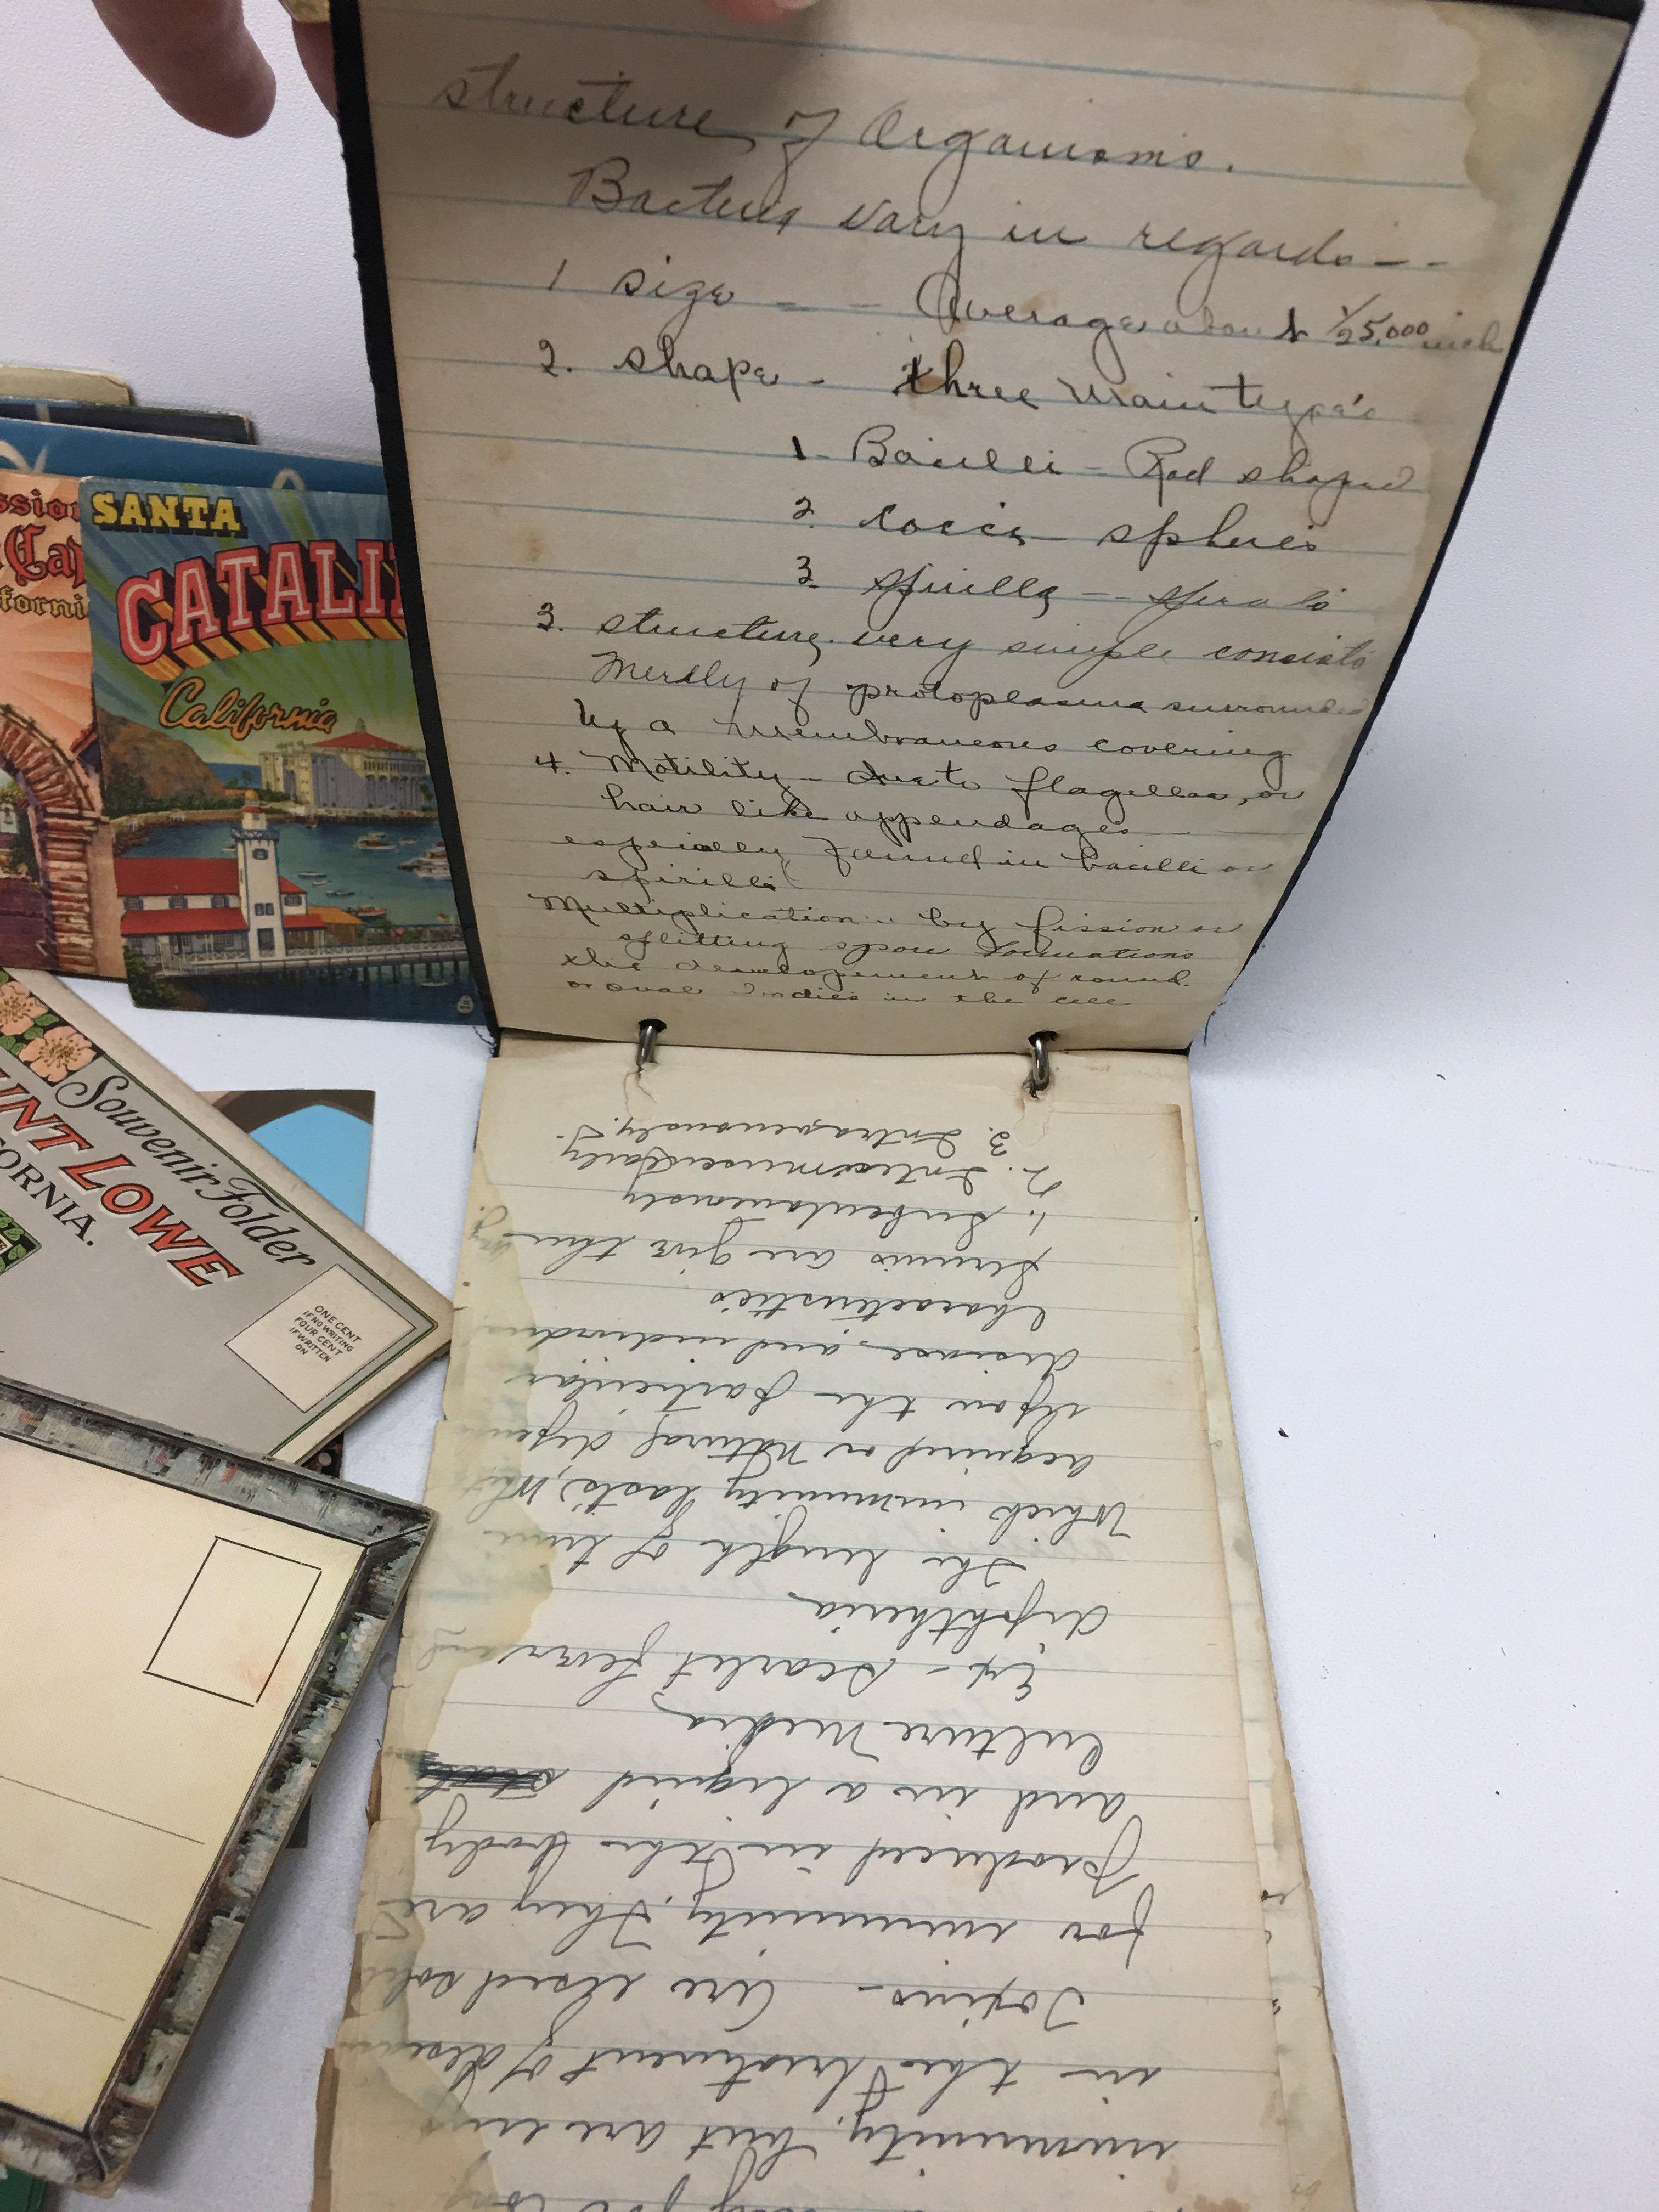 structure of Organisms.
Bacteria vary in regards--
1 size -- Average about 1/25,000 inch
2. shape - three main type's
1- Bacilli - Rod shaped
2. cocci - spheres
3. spirilla -- spirals
3. structure very simple consists
Merely of protoplasma surrounded
by a membraneous covering
4. Motility - due to flagellae, or
hair like appendages
especially found in bacilli or
spirilli
Multiplication .. by fission or
splitting spore formations
the developement of round
or oval bodies in the cell
immunity, but are
in the treatment of
Toxins - Are used
for immunity. They are
produced in the body
and in a liquid
Culture Media
Ex - Scarlet fever and
diphtheria
The length of time
Which immunity lasts,
acquired or natural
upon the particular
disease, and
Characteristics
Serums are give
1. Subcutaneously
2. Intramuscularly
3. Intravenously.
SANTA
CATALI
California
Souvenir Folder
UNT LOWE
ORNIA.
ONE CENT
IF NO WRITING
FOUR CENT
IF WRITTEN
ON
ssion
Cap
forni